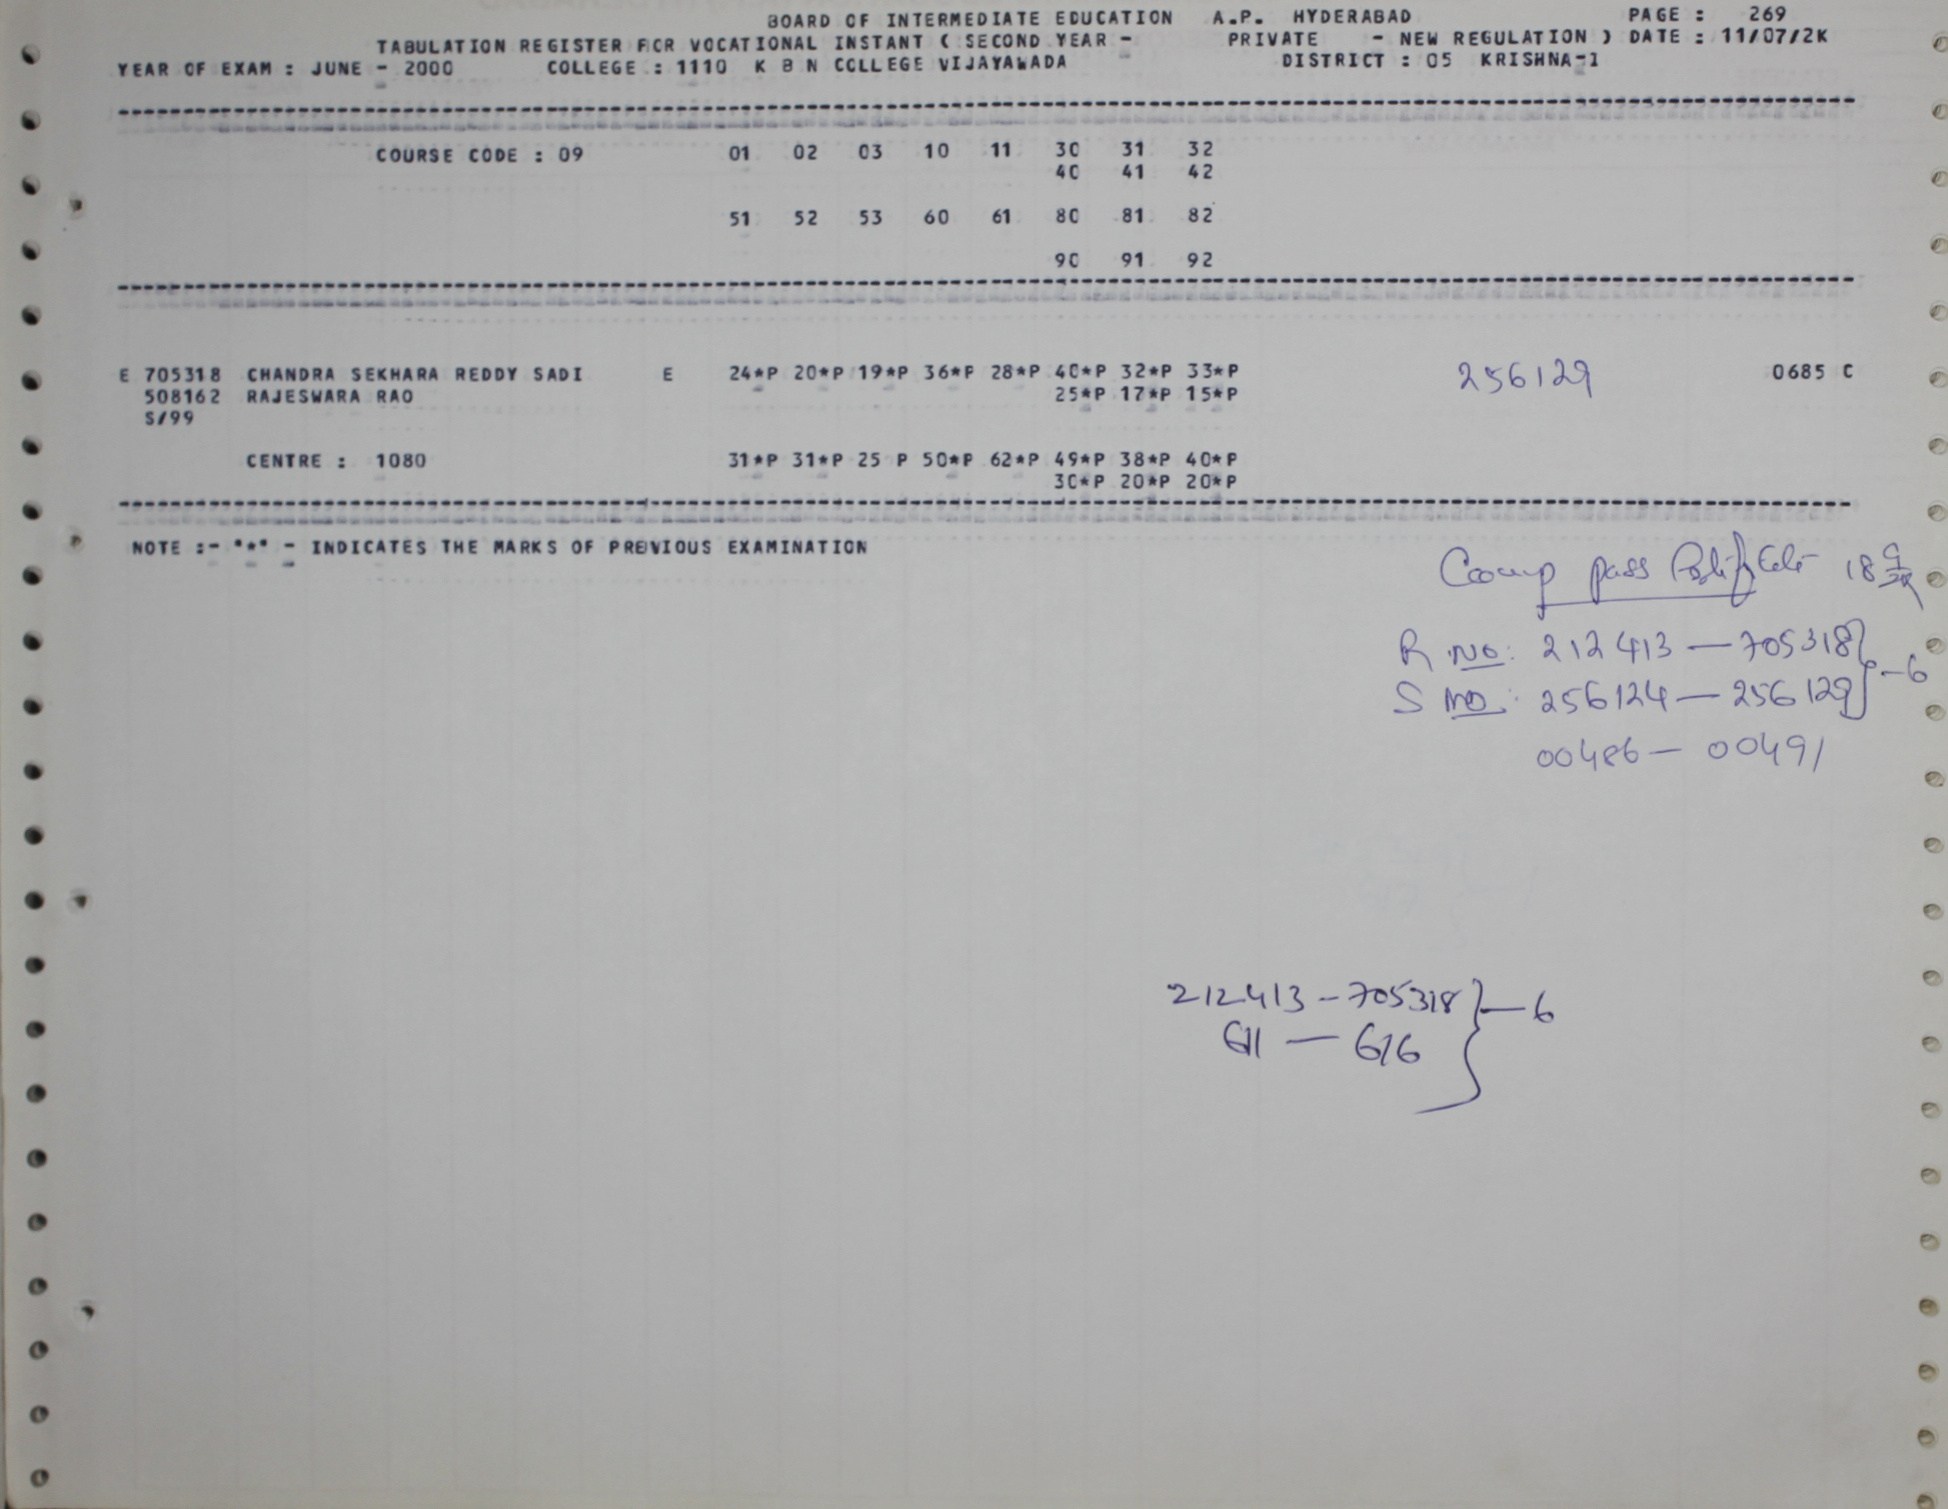 BOARD OF INTERMEDIATE EDUCATION A.P. HYDERABAD PAGE : 269
TABULATION REGISTER FOR VOCATIONAL INSTANT ( SECOND YEAR - PRIVATE - NEW REGULATION ) DATE : 11/07/2K
YEAR OF EXAM : JUNE - 2000 COLLEGE : 1110 K B N COLLEGE VIJAYAWADA DISTRICT : 05 KRISHNA-1
COURSE CODE : 09 01 02 03 10 11 30 31 32
40 41 42
51 52 53 60 61 80 81 82
90 91 92
E 705318 CHANDRA SEKHARA REDDY SADI E 24*P 20*P 19*P 36*P 28*P 40*P 32*P 33*P 256129 0685 C
508162 RAJESWARA RAO 25*P 17*P 15*P
S/99
CENTRE : 1080 31*P 31*P 25 P 50*P 62*P 49*P 38*P 40*P
30*P 20*P 20*P
NOTE :- "*" - INDICATES THE MARKS OF PREVIOUS EXAMINATION
pass
R No: 212413 — 705318 } - 6
S no: 256124 — 256129
00486 — 00491
212413 - 705318 } — 6
611 — 616